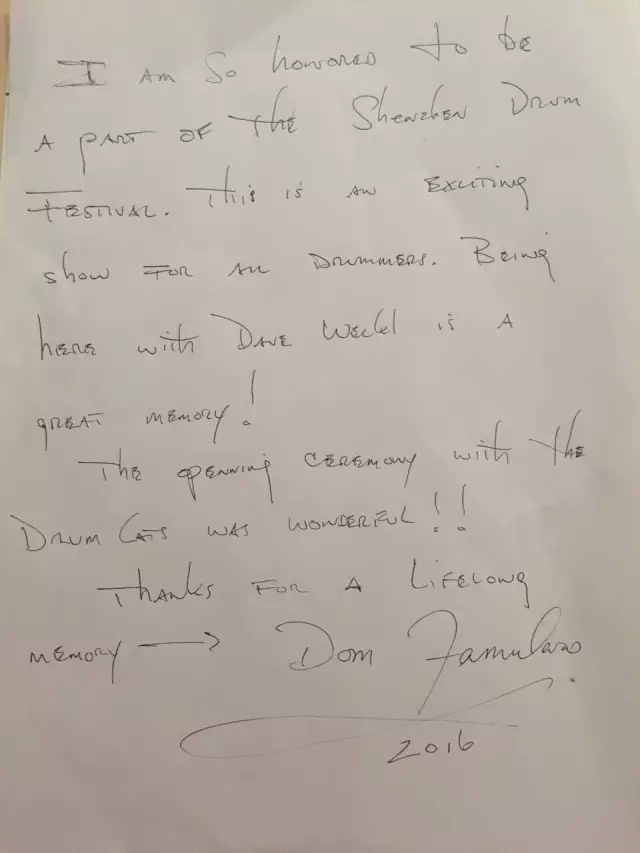 I am so honored to be
a part of the Shenzhen Drum
Festival. This is an exciting
show for all drummers. Being
here with Dave Weckl is a
great memory!
The openning ceremony with the
Drum Cats was wonderful!!
Thanks for a lifelong
memory → Dom Famularo
2016